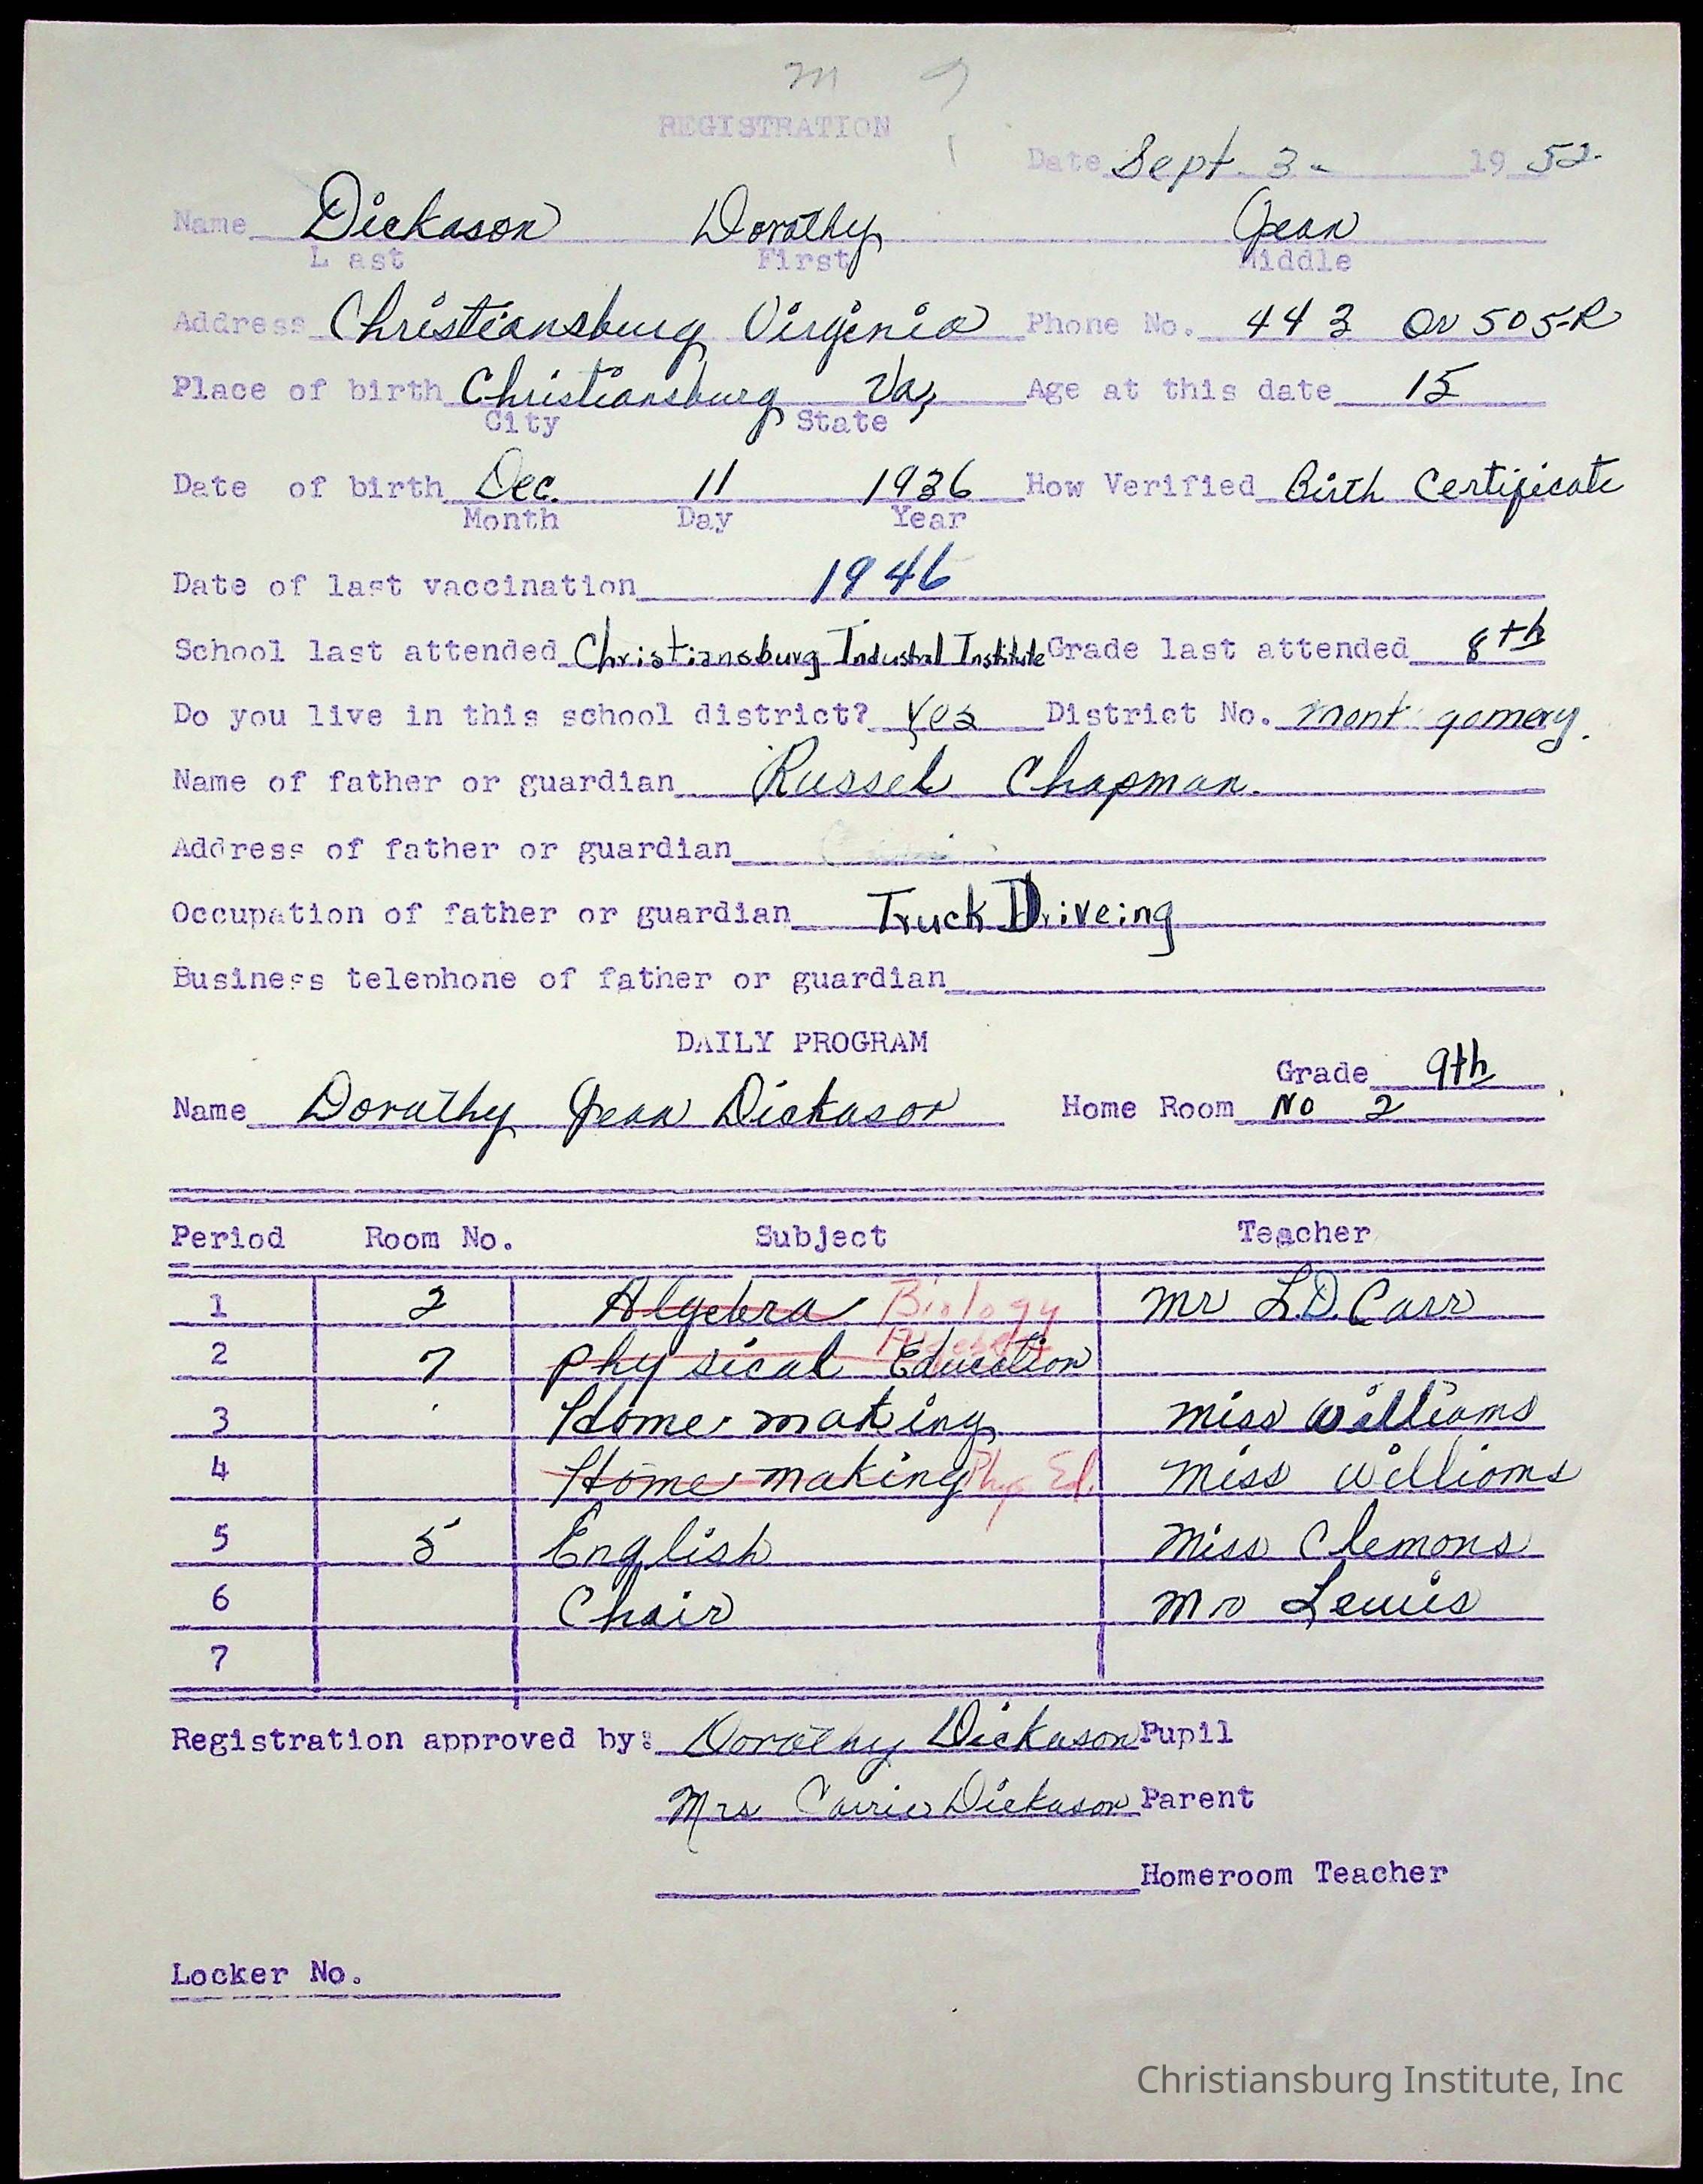 m 9
REGISTRATION
Date Sept. 3- 19 52.
Name Dickason Dorothy Jean
Last First Middle
Address Christiansburg Virginia Phone No. 443 or 505-R
Place of birth Christiansburg Va, Age at this date 15
City State
Date of birth Dec. 11 1936 How Verified Birth Certificate
Month Day Year
Date of last vaccination 1946
School last attended Christiansburg Industral Institute Grade last attended 8th
Do you live in this school district? Yes District No. Mont gomery.
Name of father or guardian Russel Chapman.
Address of father or guardian
Occupation of father or guardian Truck Driveing
Business telephone of father or guardian
DAILY PROGRAM
Grade 9th
Name Dorothy Jean Dickason Home Room No 2
Period Room No. Subject Teacher
1 2 Algebra Biology Mr L.D. Carr
2 7 Physical Education Algebra
3 Home making Miss Williams
4 Home making Phys Ed. Miss Williams
5 5 English Miss Clemons
6 Chair Mr Lewis
7
Registration approved by: Dorothy Dickason Pupil
Mrs Carrie Dickason Parent
Homeroom Teacher
Locker No.
Christiansburg Institute, Inc